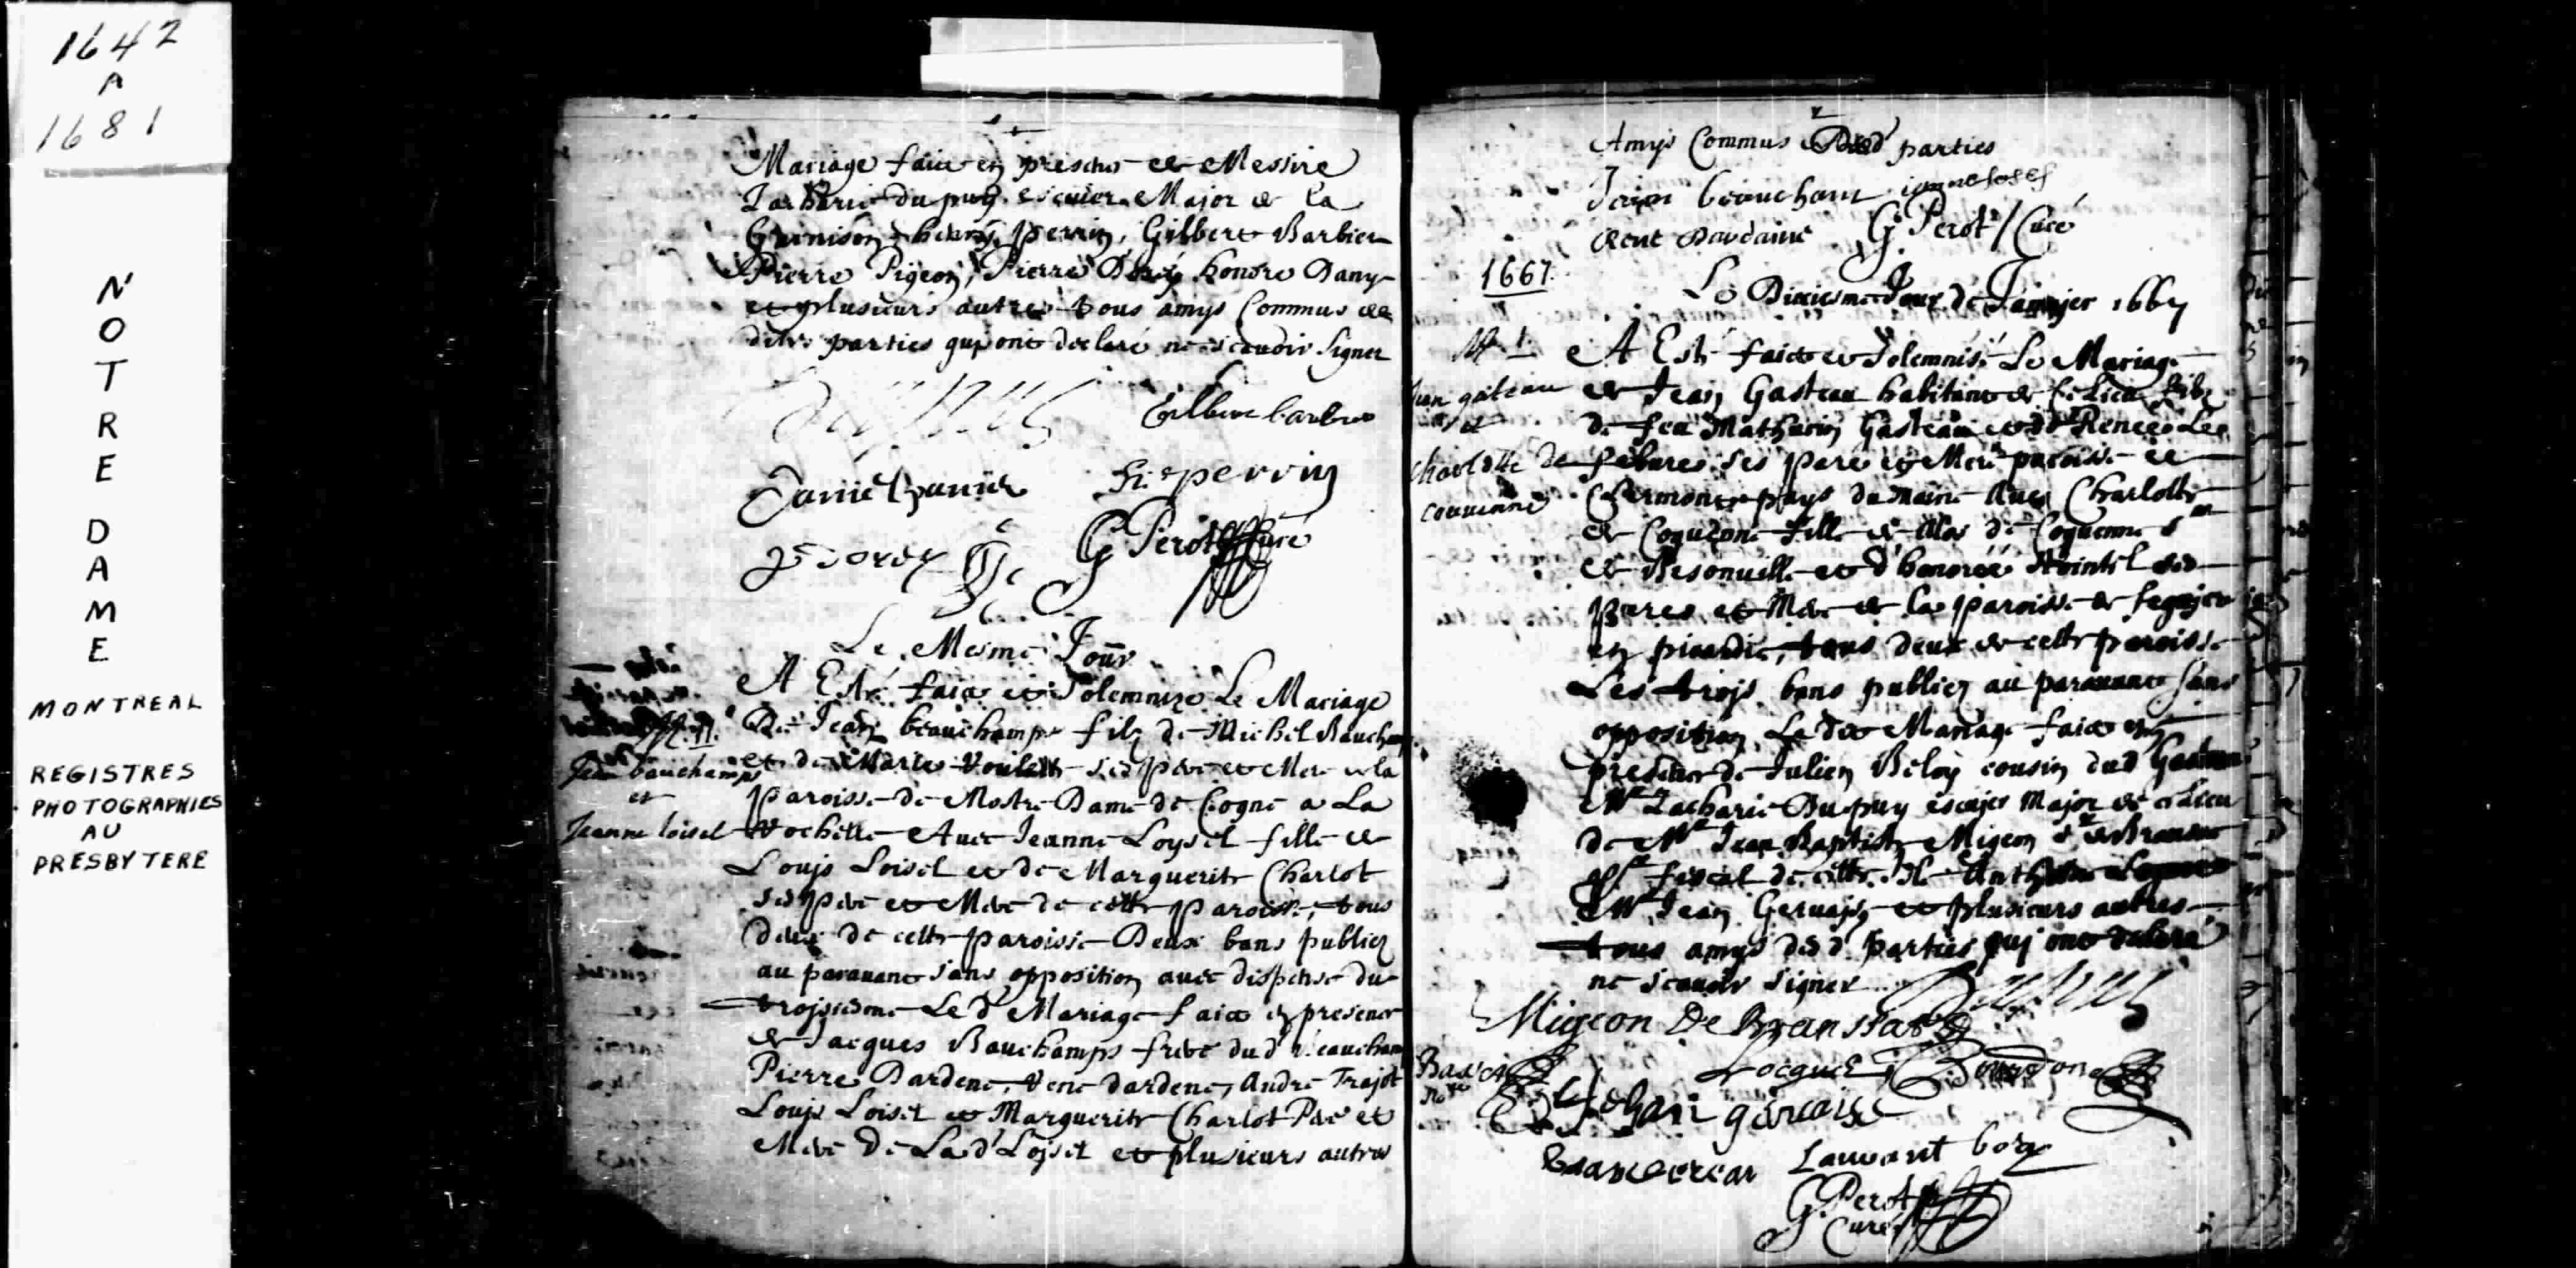 1642
A
1681
NOTRE
DAME
MONTREAL
REGISTRES
PHOTOGRAPHIES
AU
PRESBYTERE
Mariage faict en presence de Messire
Zacharie du puy escuier Major de la
Garnison henry perrin, Gilbert Barbier
Pierre Pigeon, Pierre honoré Dany
et plusieurs autres tous amys Commus de
dites parties qui ont declaré ne scavoir signer
Gilbere barbier
hr perrin
G Perot Curé
Le Mesme Jour
A Esté faict et Solemnizé Le Mariage
De Jean beauchamps filz de Michel Bauchamp
et de Marie Roulette ses pere et Mere de la
Paroisse de Nostre Dame de Cogne a La
Rochelle Avec Jeanne Loysel fille de
Louis Loisel et de Marguerite Charlot
ses pere et Mere de cette paroisse, tous
deux de cette paroisse Deux bans publiez
au paravant sans opposition avec dispense du
troisiesme Le d Mariage faict en presence
de Jacques Bauchamps frere dud beaucham
Pierre Dardene, rene dardene, André Trajot
Louis Loisel et Marguerite Charlot Pere et
Mere De La d Loisel et plusieurs autres
M. 11.
Jean bauchamps
et
Jeanne loisel
Amys Commus Desd parties
Jean beauchamp
René Dardaine G Perot / Curé
1667.
Le Dixiesme Jour de Janvier 1667
M. 1.
Jean gateau
et
charlotte de
couvenne
A Esté faict et Solemnisé Le Mariage
de Jean Gasteau habitant de ce Lieu filz
de feu Mathurin Gasteau et de Renée Le
febure ses pere et Mere paroisse de
Clermont pays du Maine Avec Charlotte
de Coquenne fille de de Coquenne Sr
de Besonville et d'honorée ses
peres et Mere de la paroisse de
en picardie, tous deux de cette paroisse
Les trois bans publiez au paravant sans
opposition Le dit Mariage faict en
presence de Julien Beloy cousin dud Gasteau
Mr Zacharie Du puy escuier Major de ce Lieu
de Mr Jean Baptiste Migeon Sr de Bransac
fiscal de cette Isle
Mr Jean Gervaise et plusieurs autres
tous amys desd. Parties qui ont declaré
ne scavoir signer
Migeon De Bransat
Basset
Nore
Jehan gervaise
Laurent bory
G. Perot
Curé